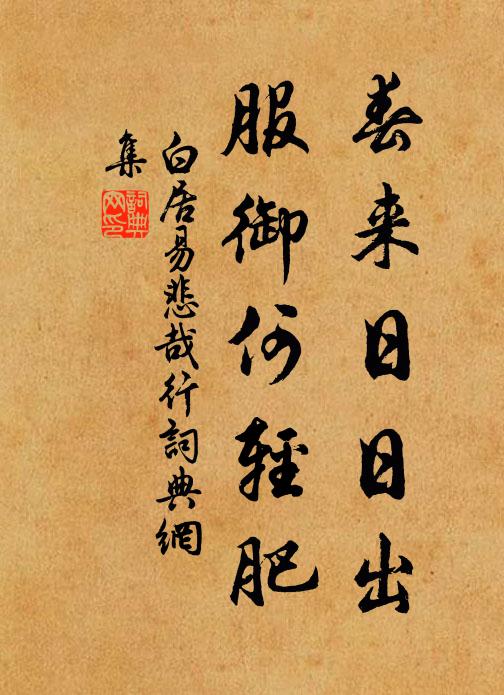 春来日日出
服御何輕肥
白居易悲哉行詞典網
集
詞典
网印